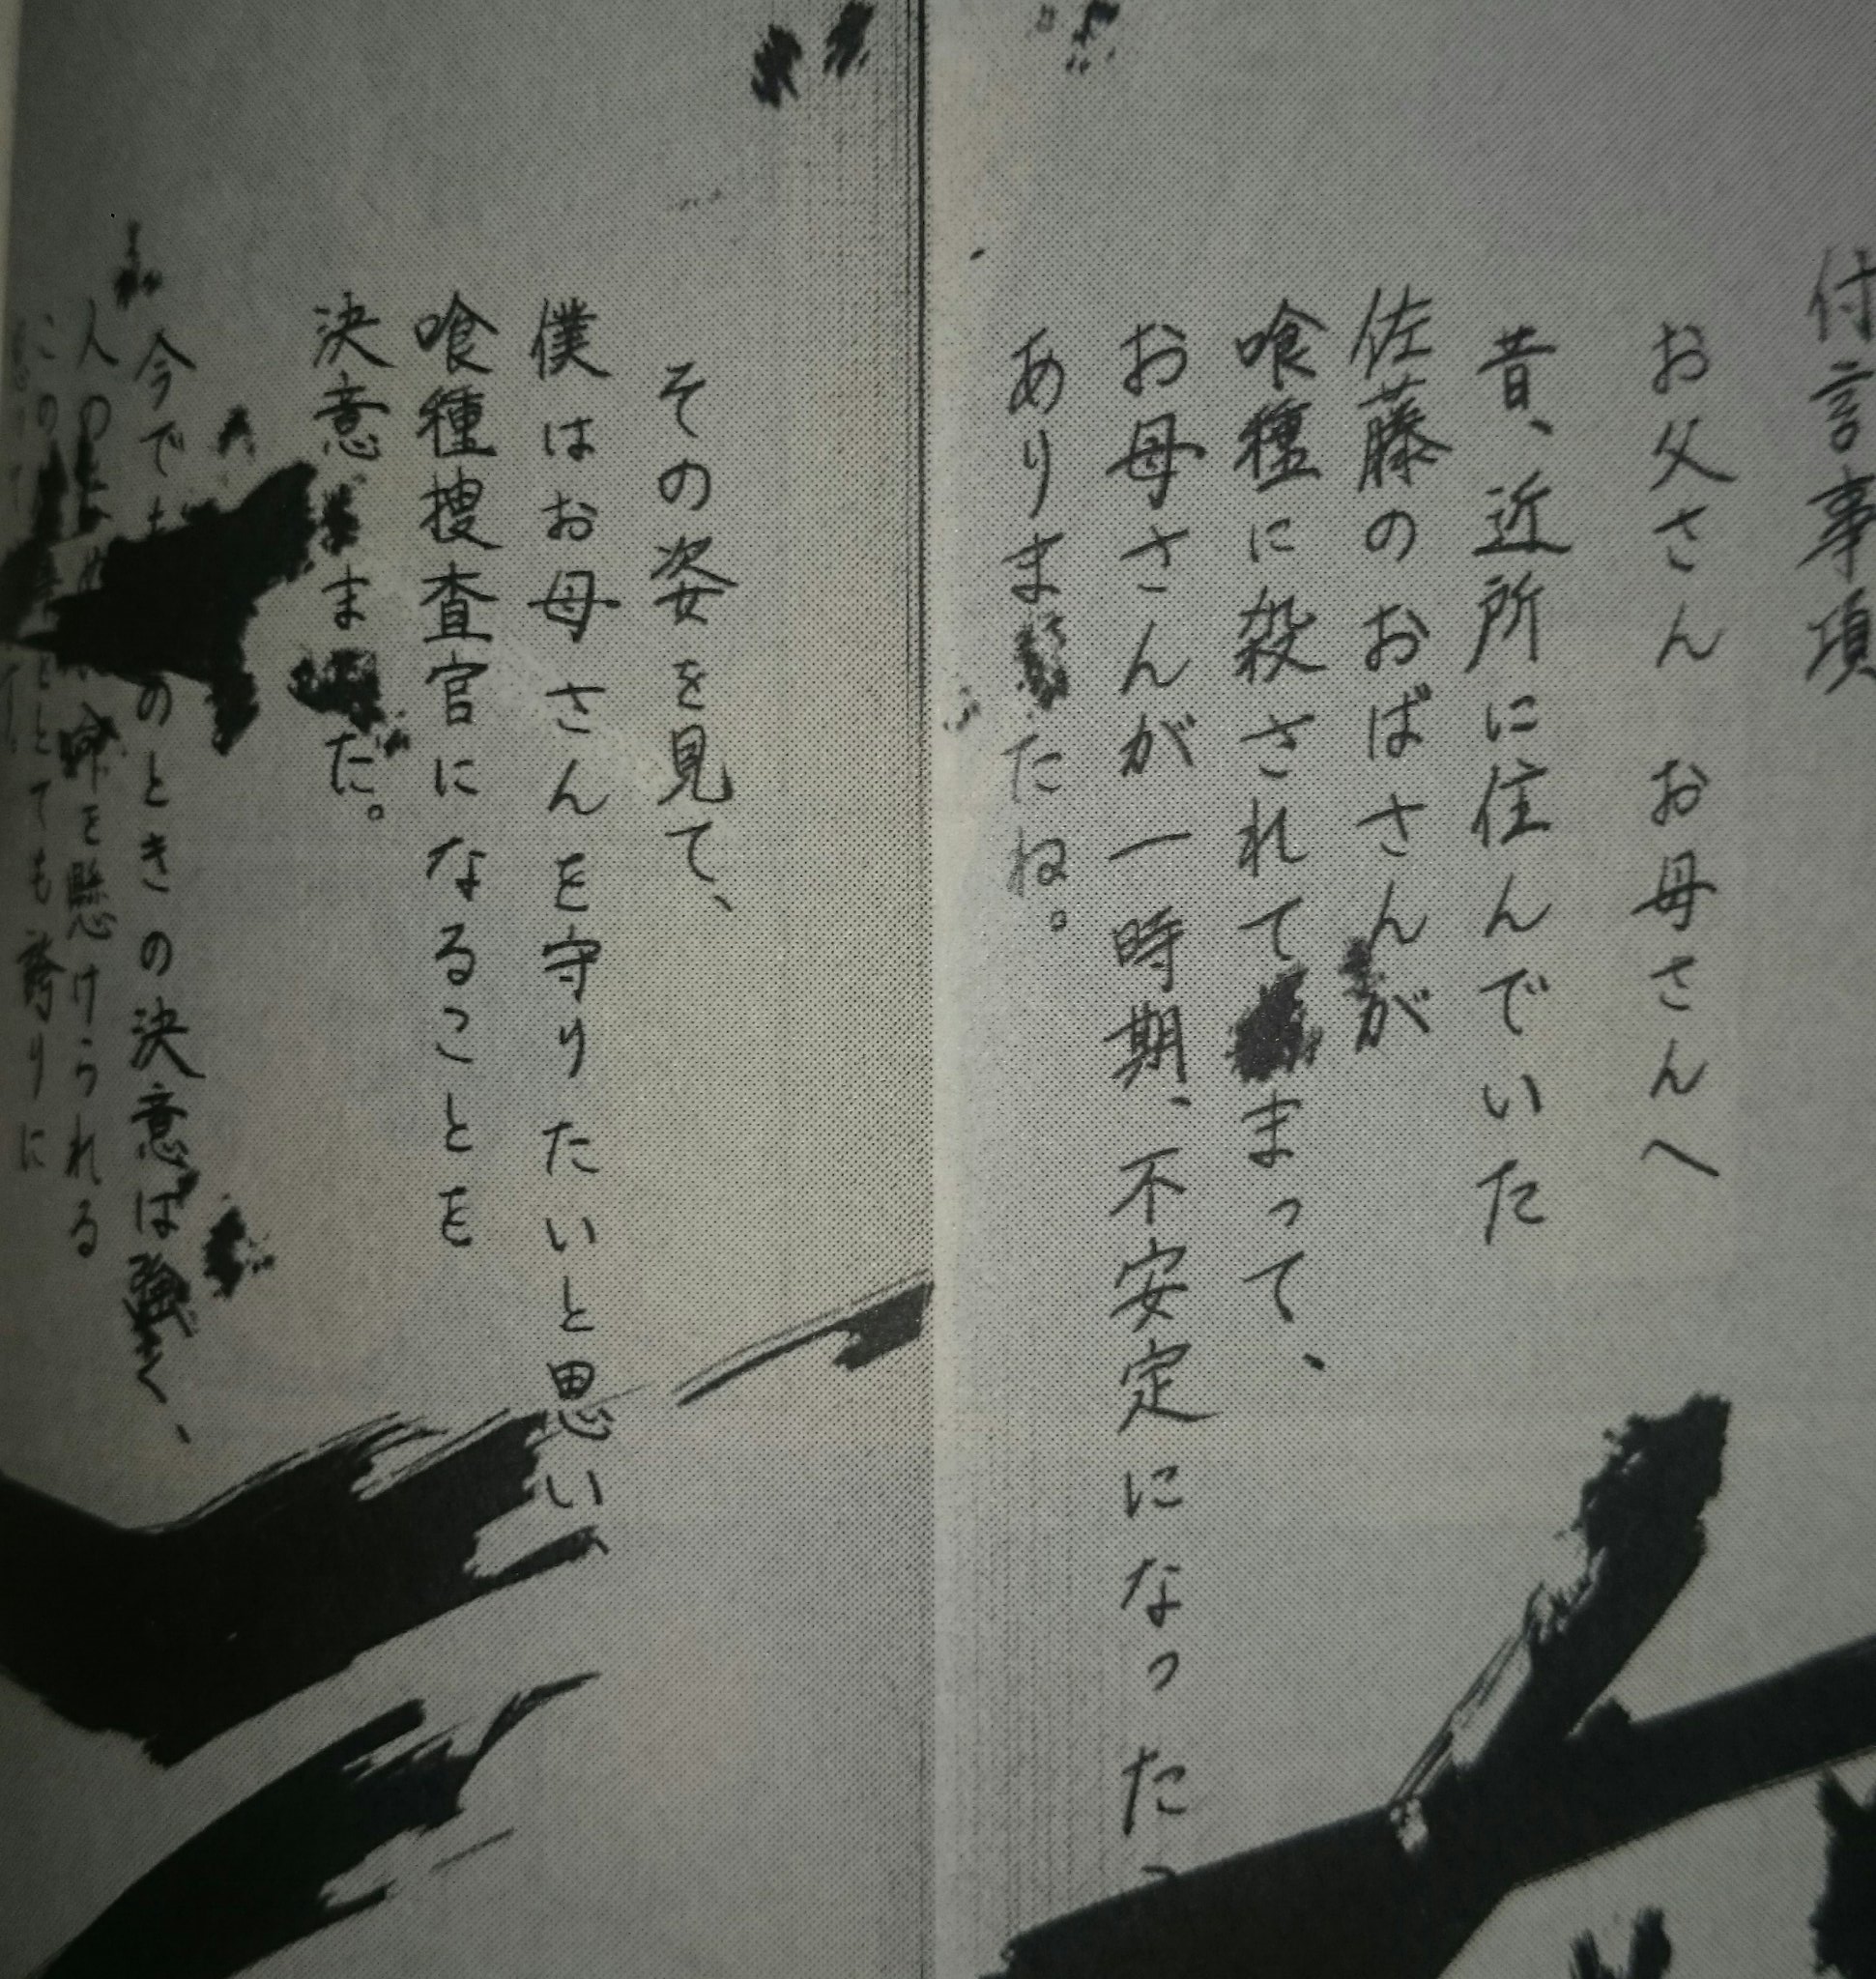 付言事項
お父さん お母さんへ
昔、近所に住んでいた
佐藤のおばさんが
喰種に殺されて まって、
お母さんが一時期、不安定になった
ありま たね。
その姿を見て、
僕はお母さんを守りたいと思い、
喰種捜査官になることを
決意 ま た。
今でも のときの決意は強く、
人の を懸けられる
この とても誇りに